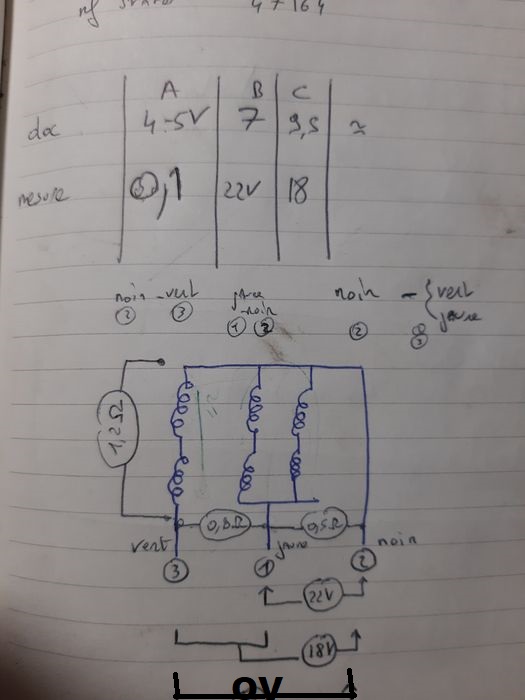 47164
A B C
doc 4-5V 7 9,5 ≈
mesure 0,1 22V 18
noir - vert jaune noir - { vert
- noir jaune
② ③ ① ② ② ③
1,2Ω
0,8Ω 0,5Ω
vert jaune noir
③ ① ②
22V
18V
0V